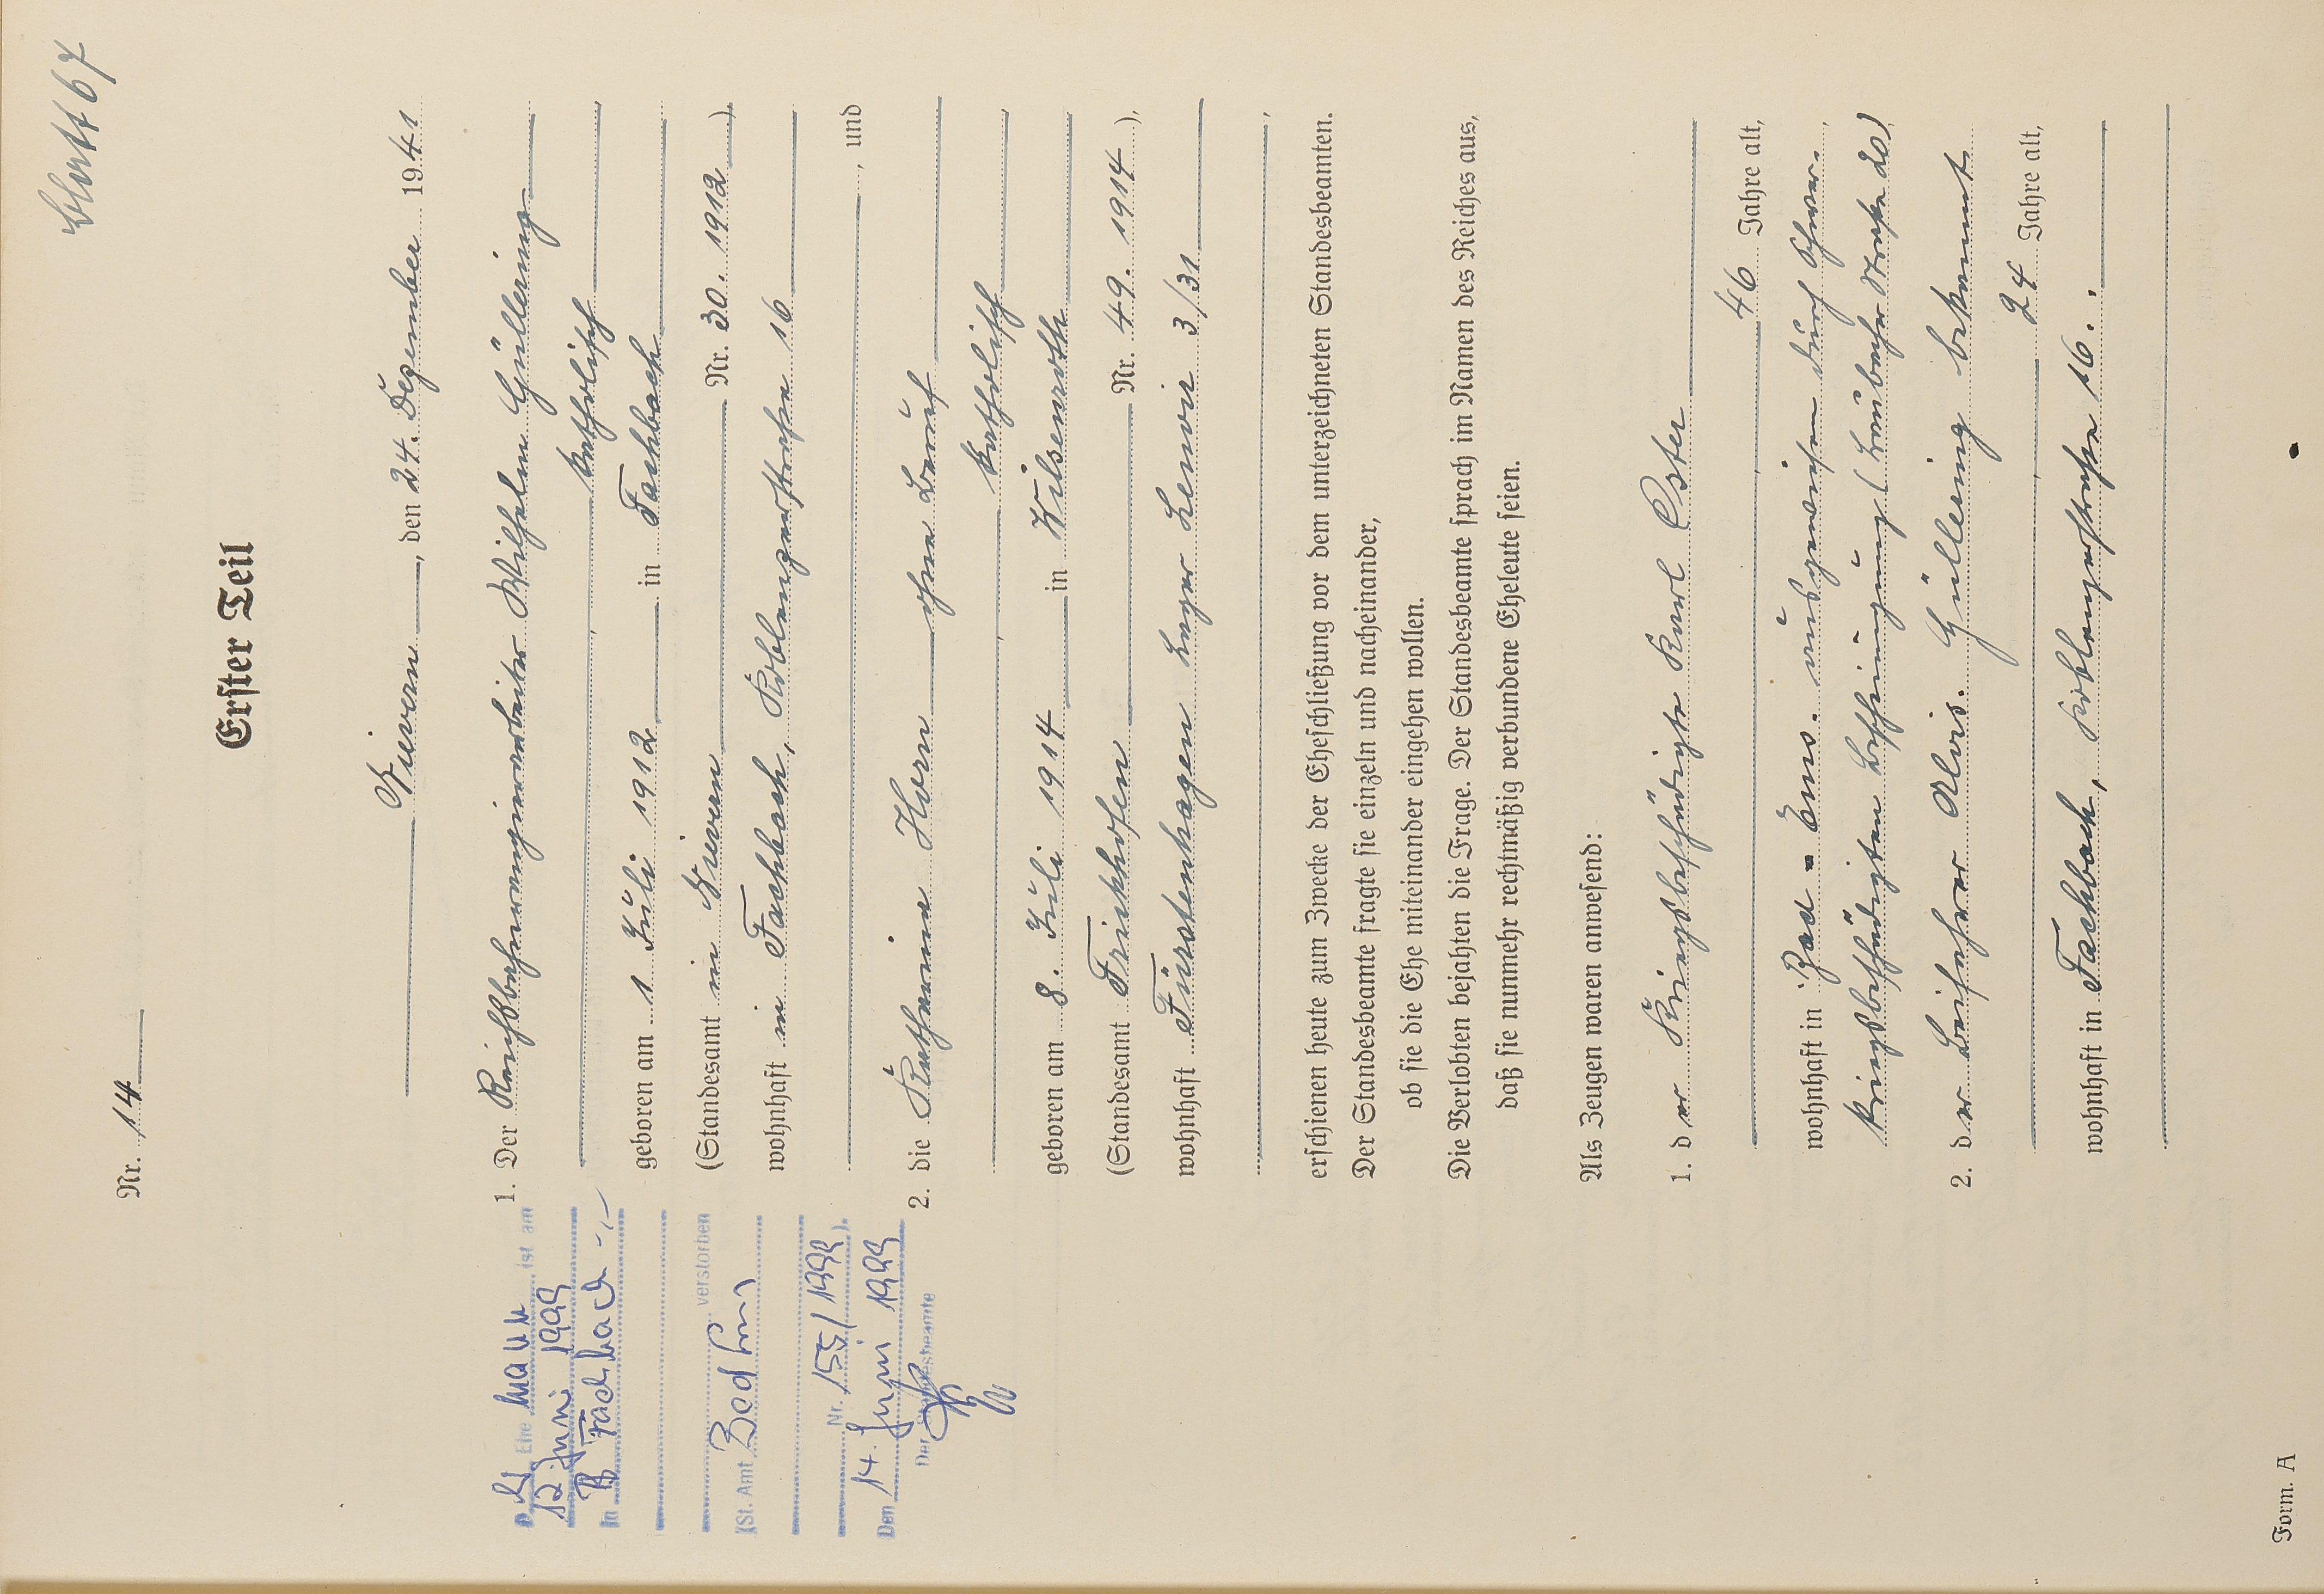 Blatt 67
Nr. 14
Erster Teil
Nievern, den 24. Dezember 1941
1. Der Reichsbahnrangierarbeiter Wilhelm Güllering
katholisch
geboren am 1 Juli 1912 in Fachbach
(Standesamt in Nievern Nr. 30. 1912)
wohnhaft in Fachbach, Koblenzerstraße 16
, und
2. die Katharina Horn ohne Beruf
katholisch
geboren am 8. Juli 1914 in Wilsenroth
(Standesamt Frickhofen Nr. 49. 1914),
wohnhaft Fürstenhagen Lager Lenoir 3/31
erschienen heute zum Zwecke der Eheschließung vor dem unterzeichneten Standesbeamten.
Der Standesbeamte fragte sie einzeln und nacheinander,
ob sie die Ehe miteinander eingehen wollen.
Die Verlobten bejahten die Frage. Der Standesbeamte sprach im Namen des Reiches aus,
daß sie nunmehr rechtmäßig verbundene Eheleute seien.
Als Zeugen waren anwesend:
1. der Kriegsbeschädigte Karl Oster
46 Jahre alt,
wohnhaft in Bad-Ems. ausgewiesen durch Schwer-
kriegsbeschädigten Bescheinigung (Braubacher Straße 20)
2. der Beifahrer Alois. Güllering bekannt
24 Jahre alt,
wohnhaft in Fachbach, Koblenzerstraße 16.
Der Ehemann ist am
12. Juni 1999
In Fachbach
verstorben
(St. Amt Bad Ems
Nr. 155/1999).
Den 14. Juni 1999
Der Standesbeamte
Form. A